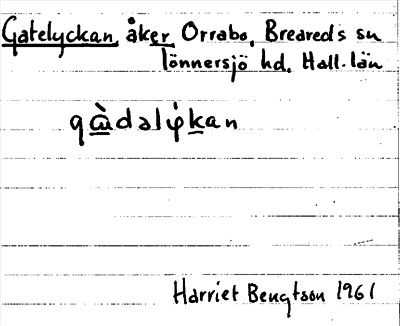 Gatelyckan, åker Orrabo, Breareds sn
Tönnersjö hd. Hall. län
gὰdəlẏ́kan
Harriet Bengtson 1961